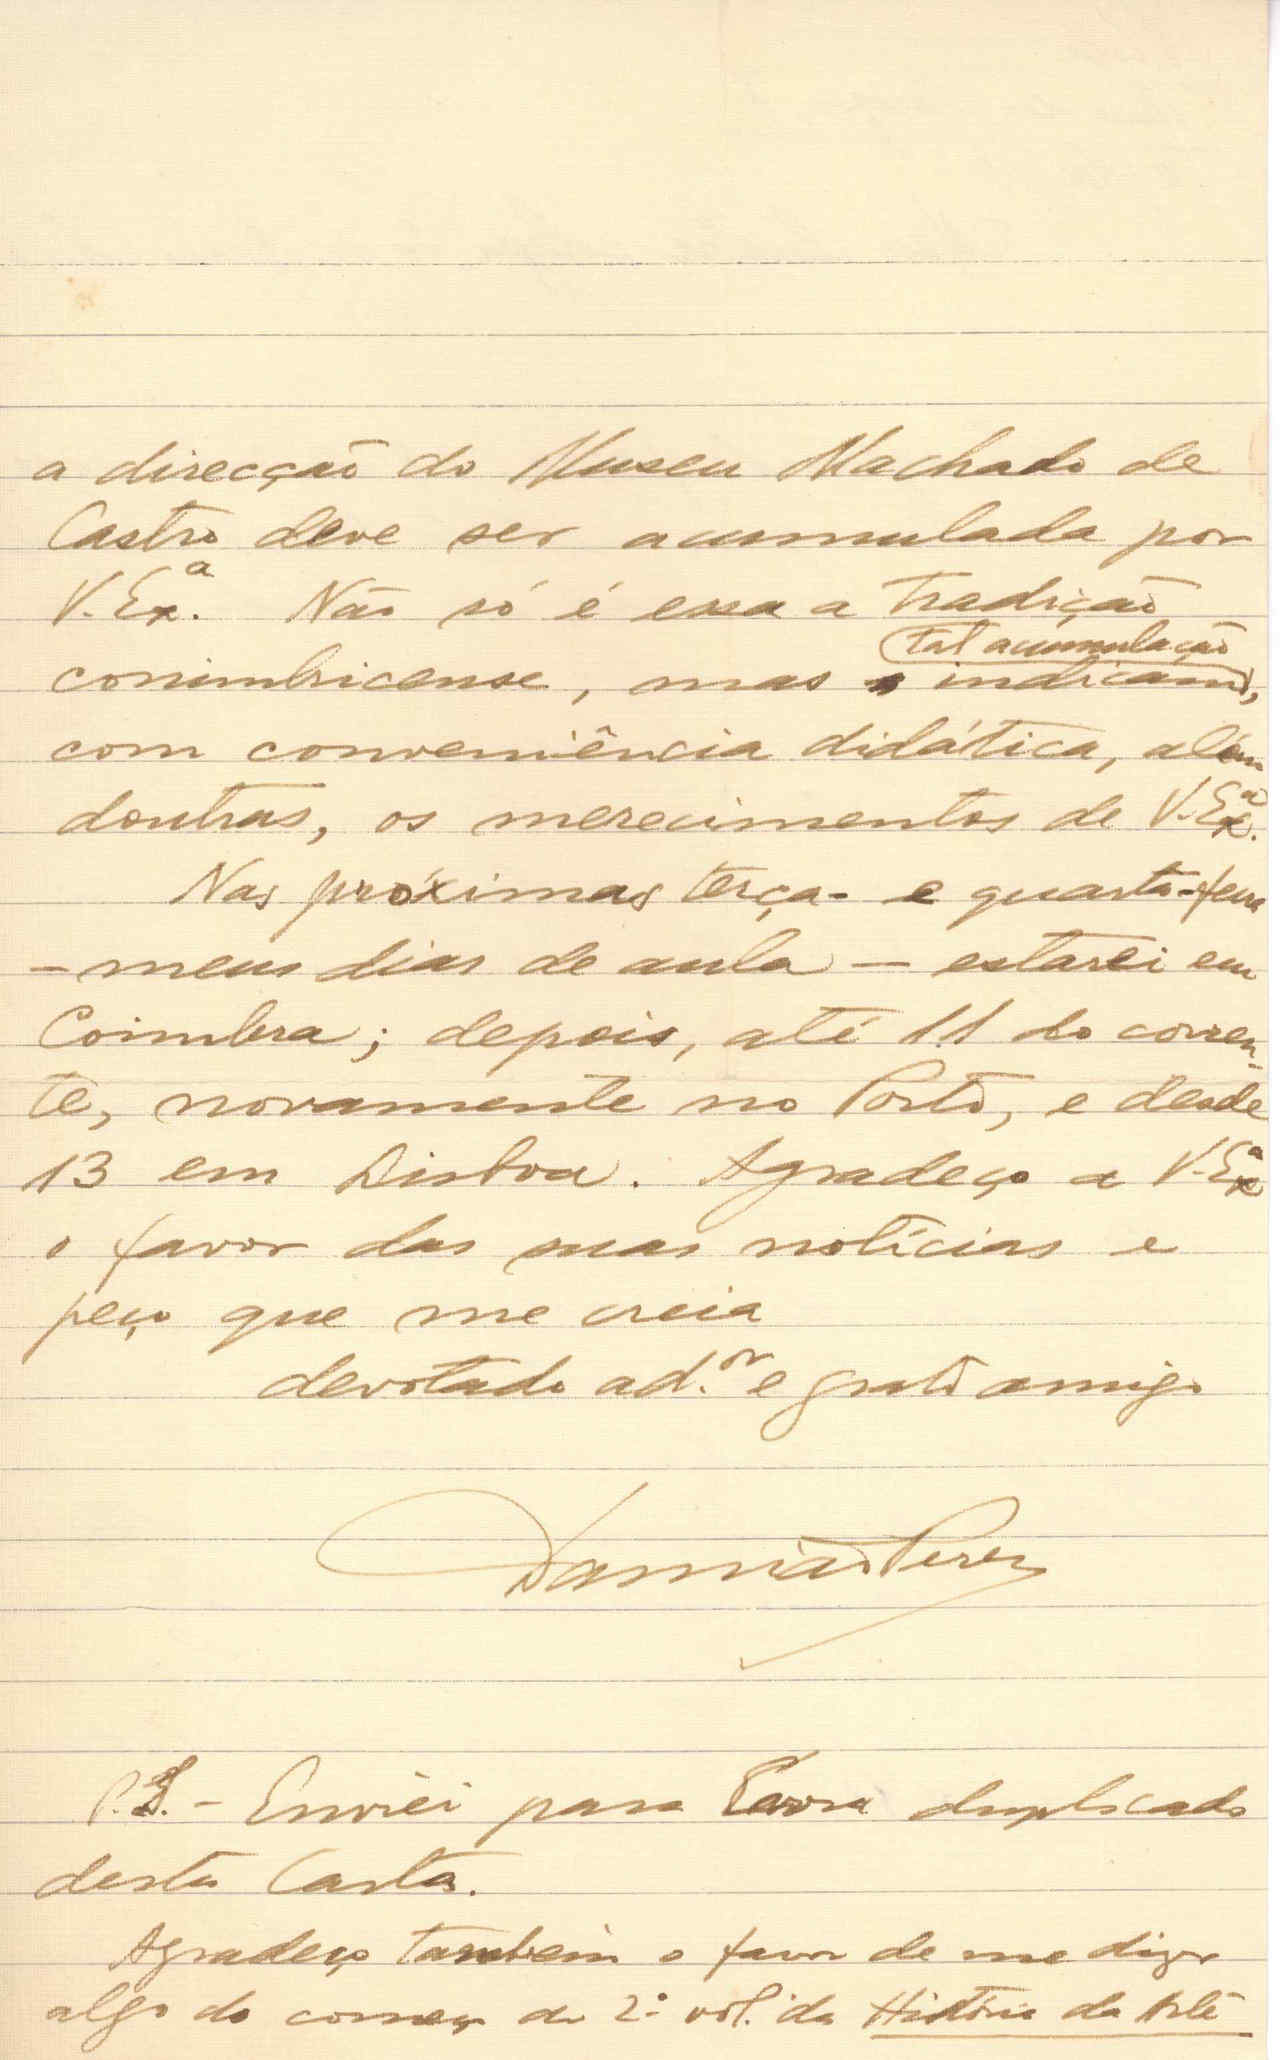 a direcção do Museu Machado de
Castro deve ser acumulada por
V. Ex.ª Não só é essa a tradição
conimbricense, mas indicam,
tal acumulação
com conveniência didática, além
doutras, os merecimentos de V. Ex.ª
Nas próximas terça- e quarta-feira
- meus dias de aula - estarei em
Coimbra; depois, até 11 do corren-
te, novamente no Porto, e desde
13 em Lisboa. Agradeço a V. Exª
o favor das suas notícias e
peço que me creia
devotado ad.or e grato amigo
Damião Peres
P.S. - Enviei para Évora duplicado
desta Carta.
Agradeço também o favor de me dizer
algo do começo do 2.º vol. da História da Arte